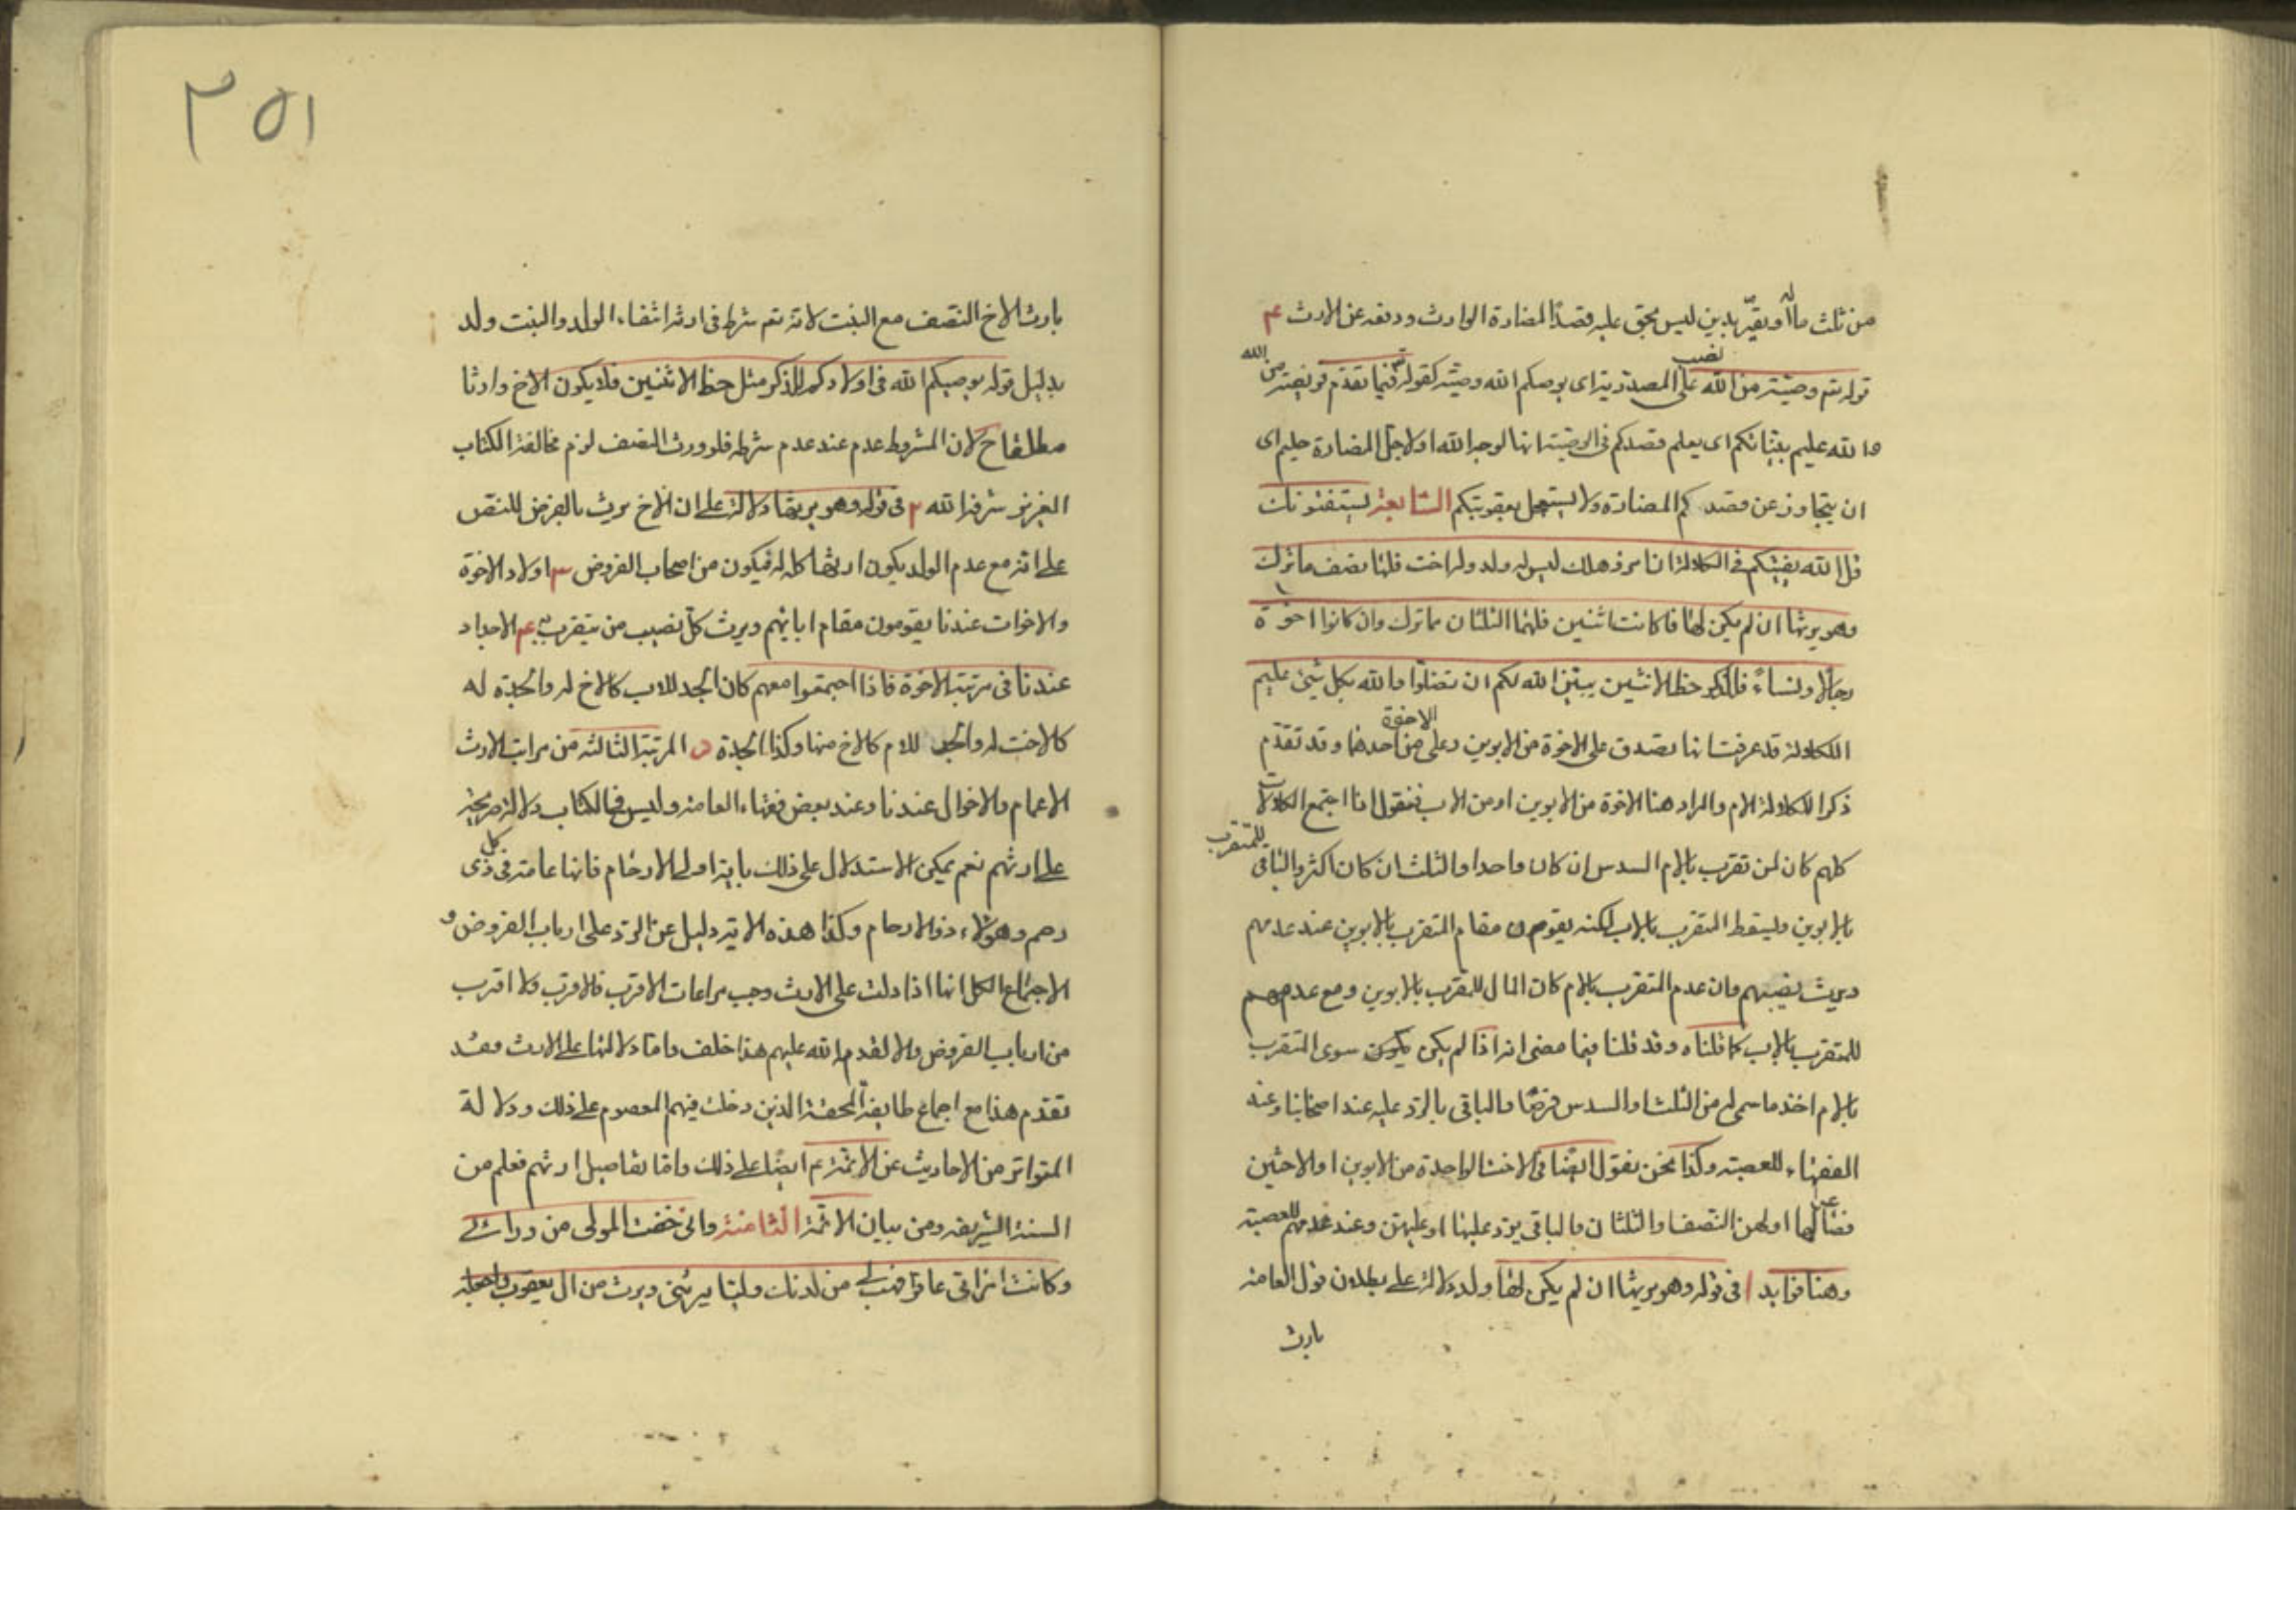 من ثلث ماله او يقرّ بدين ليس بحق عليه قصدًا لمضارة الوارث ودفعه عن الارث ع
قوله تعم وصيّة من الله نصب على المصدرية اى يوصيكم الله وصيّة كقوله تعم فيما تقدّم فريضة من الله
والله عليم بنيّاتكم اى يعلم قصدكم فى الوصيّة انها لوجه الله او لاجل المضارة حليم اى
ان يتجاوز عن قصدكم المضارة ولا يستعجل بعقوبتكم السّابعة يستفتونك
قل الله يفتيكم فى الكلالة ان امرؤ هلك ليس له ولد وله اخت فلها نصف ما ترك
وهو يرثها ان لم يكن لها فا كانتا اثنتين فلهما الثلثان مما ترك وان كانوا اخوة
رجالًا ونساءً فللذكر حظ الانثيين يبيّن الله لكم ان تضلّوا والله بكل شئ عليم
الكلالة قد عرفت انها تصدق على الاخوة من الابوين وعلى الاخوة من احدهما وقد تقدّم
ذكر الكلالة الام والمراد هنا الاخوة من الابوين او من الاب فنقول اذا اجتمع الكلالات
كلهم كان لمن تقرب بالام السدس ان كان واحدا والثلث ان كان اكثر والباقى للمتقرب
بالابوين ويسقط المتقرب بالاب لكنه يقوم مقام المتقرب بالابوين عند عدمهم
ويرث نصيبهم وان عدم المتقرب بالام كان المال للمتقرب بالابوين ومع عدمهم
للمتقرب بالاب كما قلناه وقد قلنا فيما مضى انه اذا لم يكن يكون سوى المتقرب
بالام اخذ ما سمى له من الثلث او السدس فرضًا والباقى بالرد عليه عند اصحابنا وعند
الفقهاء للعصبة وكذا نحن نقول ايضًا فى الاخت الواحدة من الابوين او الاختين
فصاعدا لها او لهن النصف او الثلثان والباقى يرد عليها او عليهن وعند غيرهم للعصبة
وهنا فوايد ا فى قوله وهو يرثها ان لم يكن لها ولد دلالة على بطلان قول العامة
بارث
٣٥١
بارث الاخ النصف مع البنت لانه تعم شرط فى ارثه انتفاء الولد والبنت ولد
بدليل قوله يوصيكم الله فى اولادكم للذكر مثل حظ الانثيين فلا يكون الاخ وارثا
مطلقا ح لان المشروط عدم عند عدم شرطه فلو ورث النصف لزم مخالفة الكتاب
العزيز شرفه الله ٢ فى قوله وهو يرثها دلالة على ان الاخ يرث بالفرض للنقص
على انه مع عدم الولد يكون ارثها كله له فيكون من اصحاب الفروض ٣ اولاد الاخوة
والاخوات عندنا يقومون مقام ابائهم ويرث كلّ نصيب من يتقرب به ع الاجداد
عندنا فى مرتبة الاخوة فاذا اجتمعوا معهم كان الجد للاب كالاخ له والجدة له
كالاخت له والجد للام كالاخ منها وكذا الجدة ٥ المرتبة الثالثة من مراتب الارث
الاعمام والاخوال عندنا وعند بعض فقهاء العامة وليس فى الكتاب دلالة صريحة
على ارثهم نعم يمكن الاستدلال على ذلك باية اولى الارحام فانها عامة فى كل ذى
رحم وهؤلاء ذوا الارحام وكذا هذه الاية دليل عن الرد على ارباب الفروض و
الاجتماع الكل انها اذا دلت على الارث وجب مراعات الاقرب فالاقرب ولا اقرب
من ارباب الفروض والا لقدم الله عليهم هذا خلف واما دلالتها على الارث فقد
تقدّم هذا مع اجماع طايفة المحقة الذين دخلت فيهم المعصوم على ذلك ودلالة
المتواتر من الاحاديث عن الائمة ع ايضًا على ذلك واما تفاصيل ارثهم فعلم من
السنة الشريفة ومن بيان الائمة الثامنة وانى خفت الموالى من ورائى
وكانت امراتى عاقرا فهب لى من لدنك وليا يرثنى ويرث من ال يعقوب واجعله